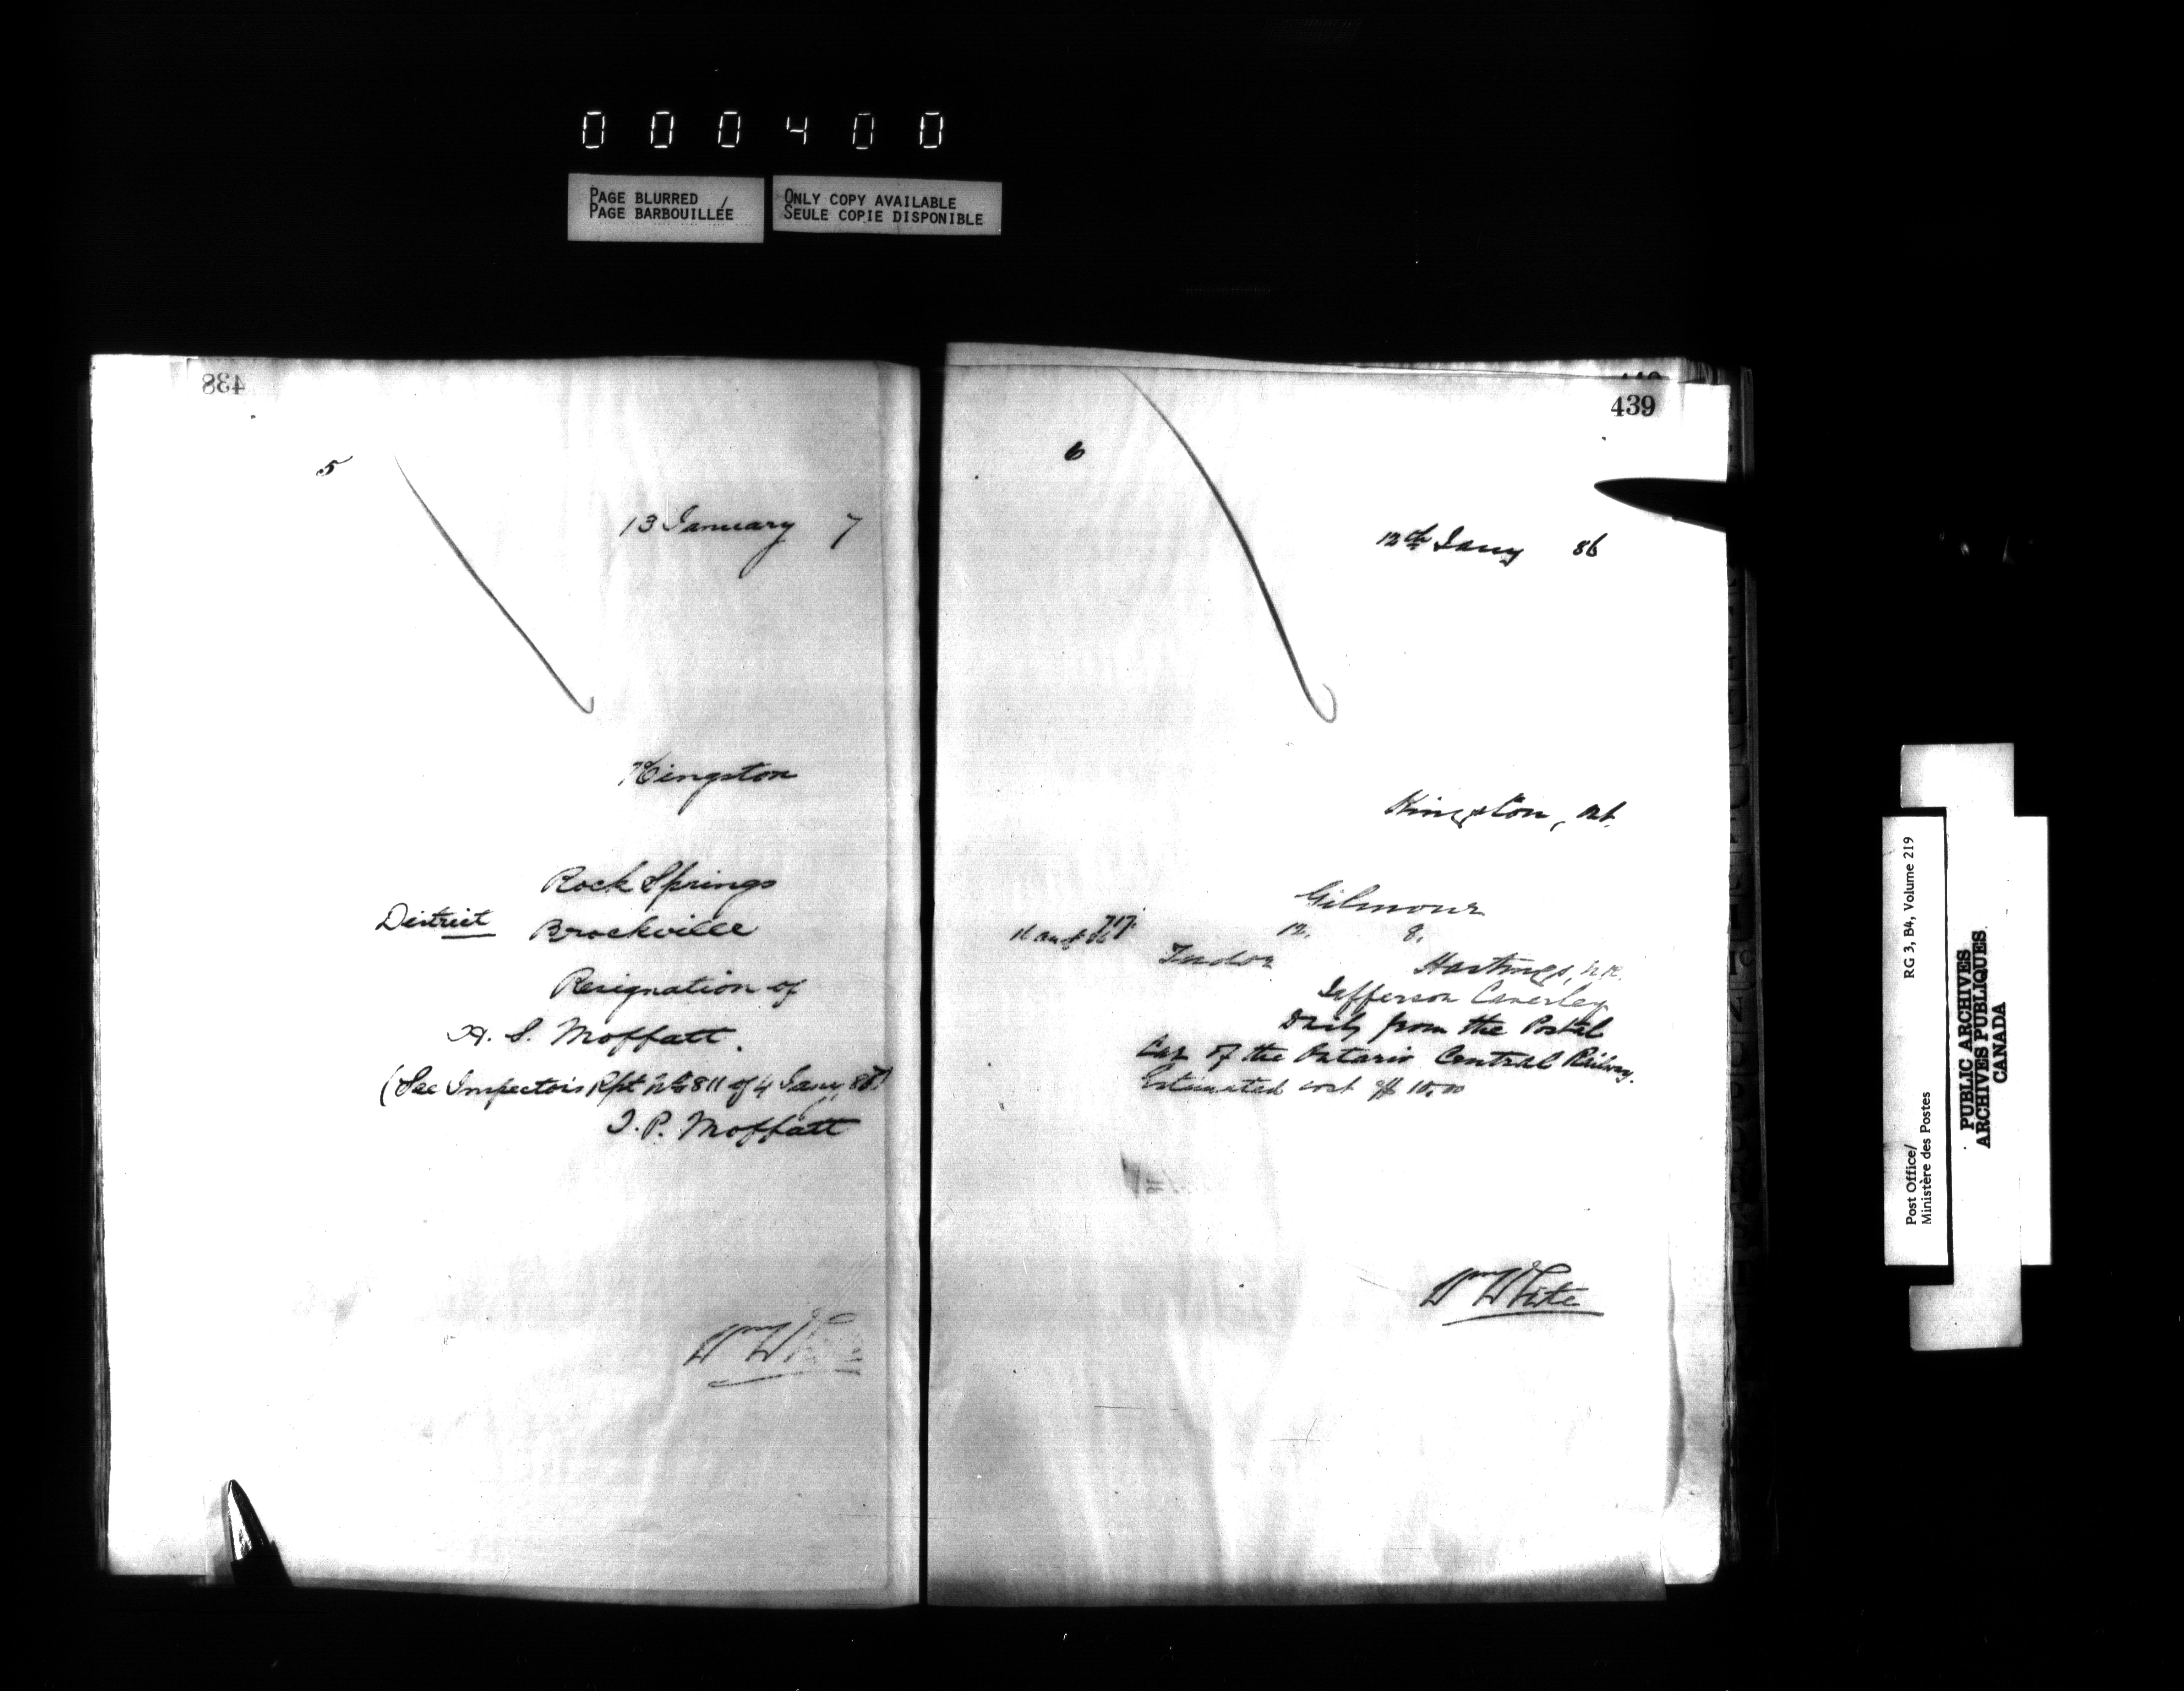 000400
PAGE BLURRED /
PAGE BARBOUILLÉE
ONLY COPY AVAILABLE
SEULE COPIE DISPONIBLE
438
5
13 January 7
Kingston
Rock Springs
District Brockville
Resignation of
H. S. Moffatt.
(See Inspector's Rpt No 811 of 4 Jany
T. P. Moffatt
Wm White
439
6
12th Jany 86
Kingston,
Gilmour
12. 8.
Tudor Hastings, N.R.
Jefferson Caverley
Daily from the Postal
Car of the Ontario Central Railway.
Estimated cost $10.00
Wm White
Post Office/ RG 3, B4, Volume 219
Ministère des Postes
PUBLIC ARCHIVES
ARCHIVES PUBLIQUES
CANADA